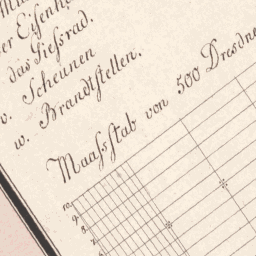 der Eisenh
das Gießrad.
v. Scheunen
w. Brandtstellen.
Maasstab von 500 Dresdne
10.
9.
8.
7.